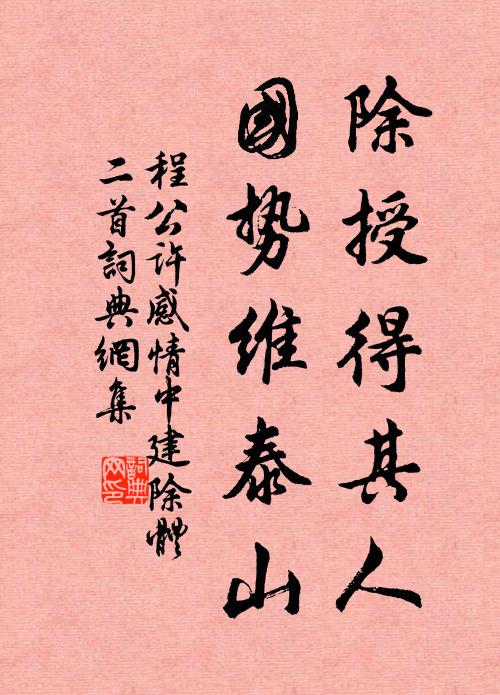 除授得其人
國势維泰山
程公许感情中建除體
二首詞典網集
詞典
网印